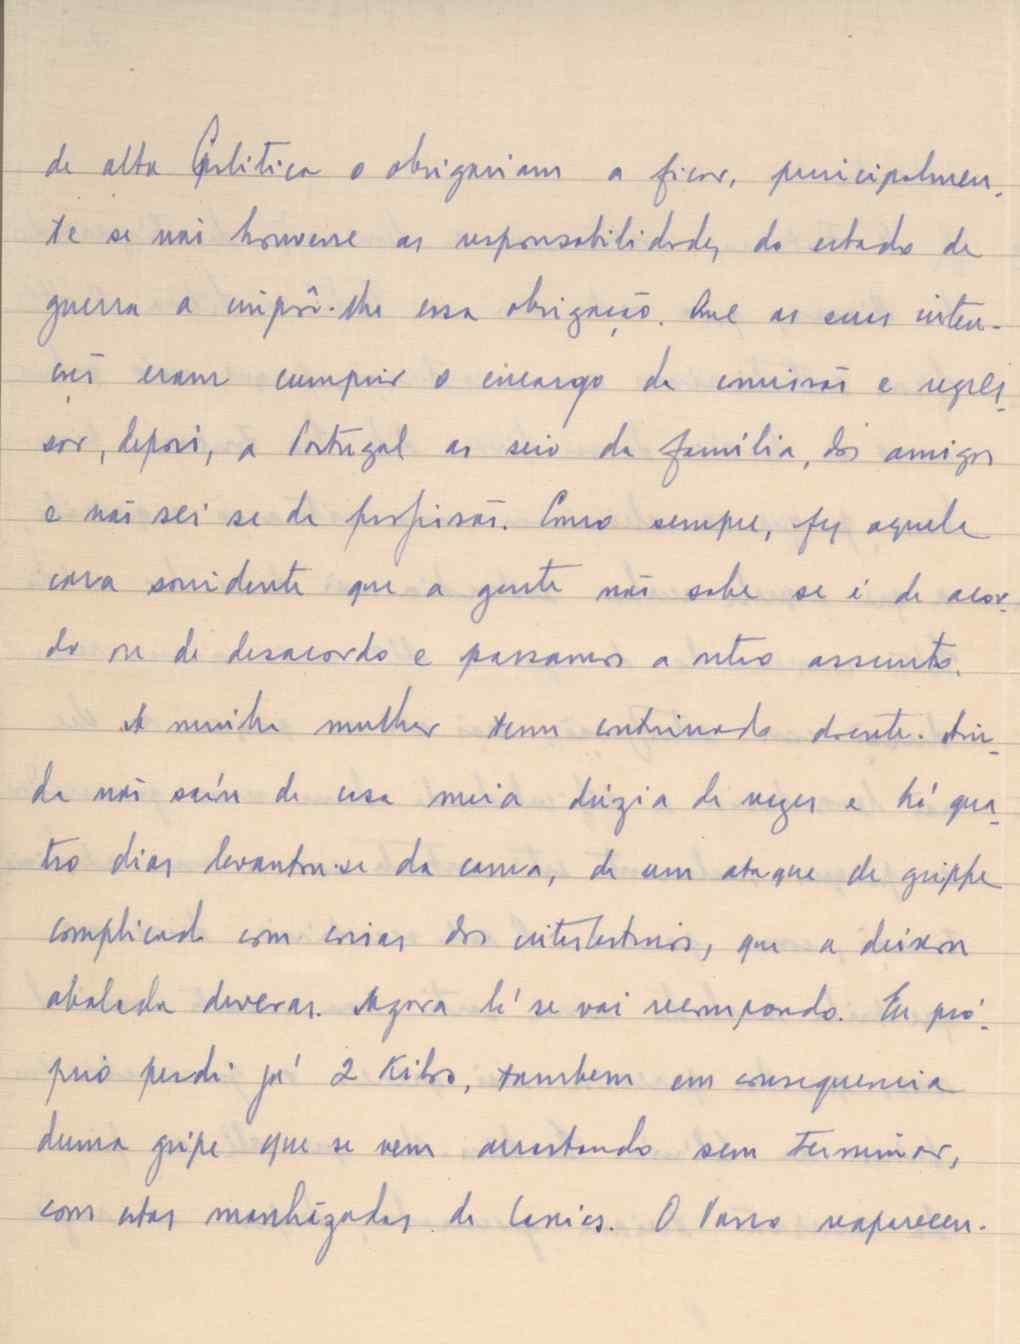 de alta Politica o obrigariam a ficar, principalmen-
te se não houvesse as responsabilidades do estado de
guerra a impôr-lhe essa obrigação. Que as suas inten-
ções eram cumprir o encargo da comissão e regres-
sar, depois, a Portugal ao seio da família, dos amigos
e não sei se da profissão. Como sempre, fez aquela
cara sorridente que a gente não sabe se é de acor-
do ou de desacordo e passamos a outro assunto.
A minha mulher tem continuado doente. Ain-
da não saíu de casa meia dúzia de vezes e há qua-
tro dias levantou-se da cama, de um ataque de grippe
complicado com coisas dos intestinos, que a deixou
abalada deveras. Agora lá se vai recompondo. Eu pró-
prio perdi já 2 Kilos, tambem em consequencia
duma gripe que se vem arrastando sem terminar,
com estas manhãzadas de O Vasco reapareceu.